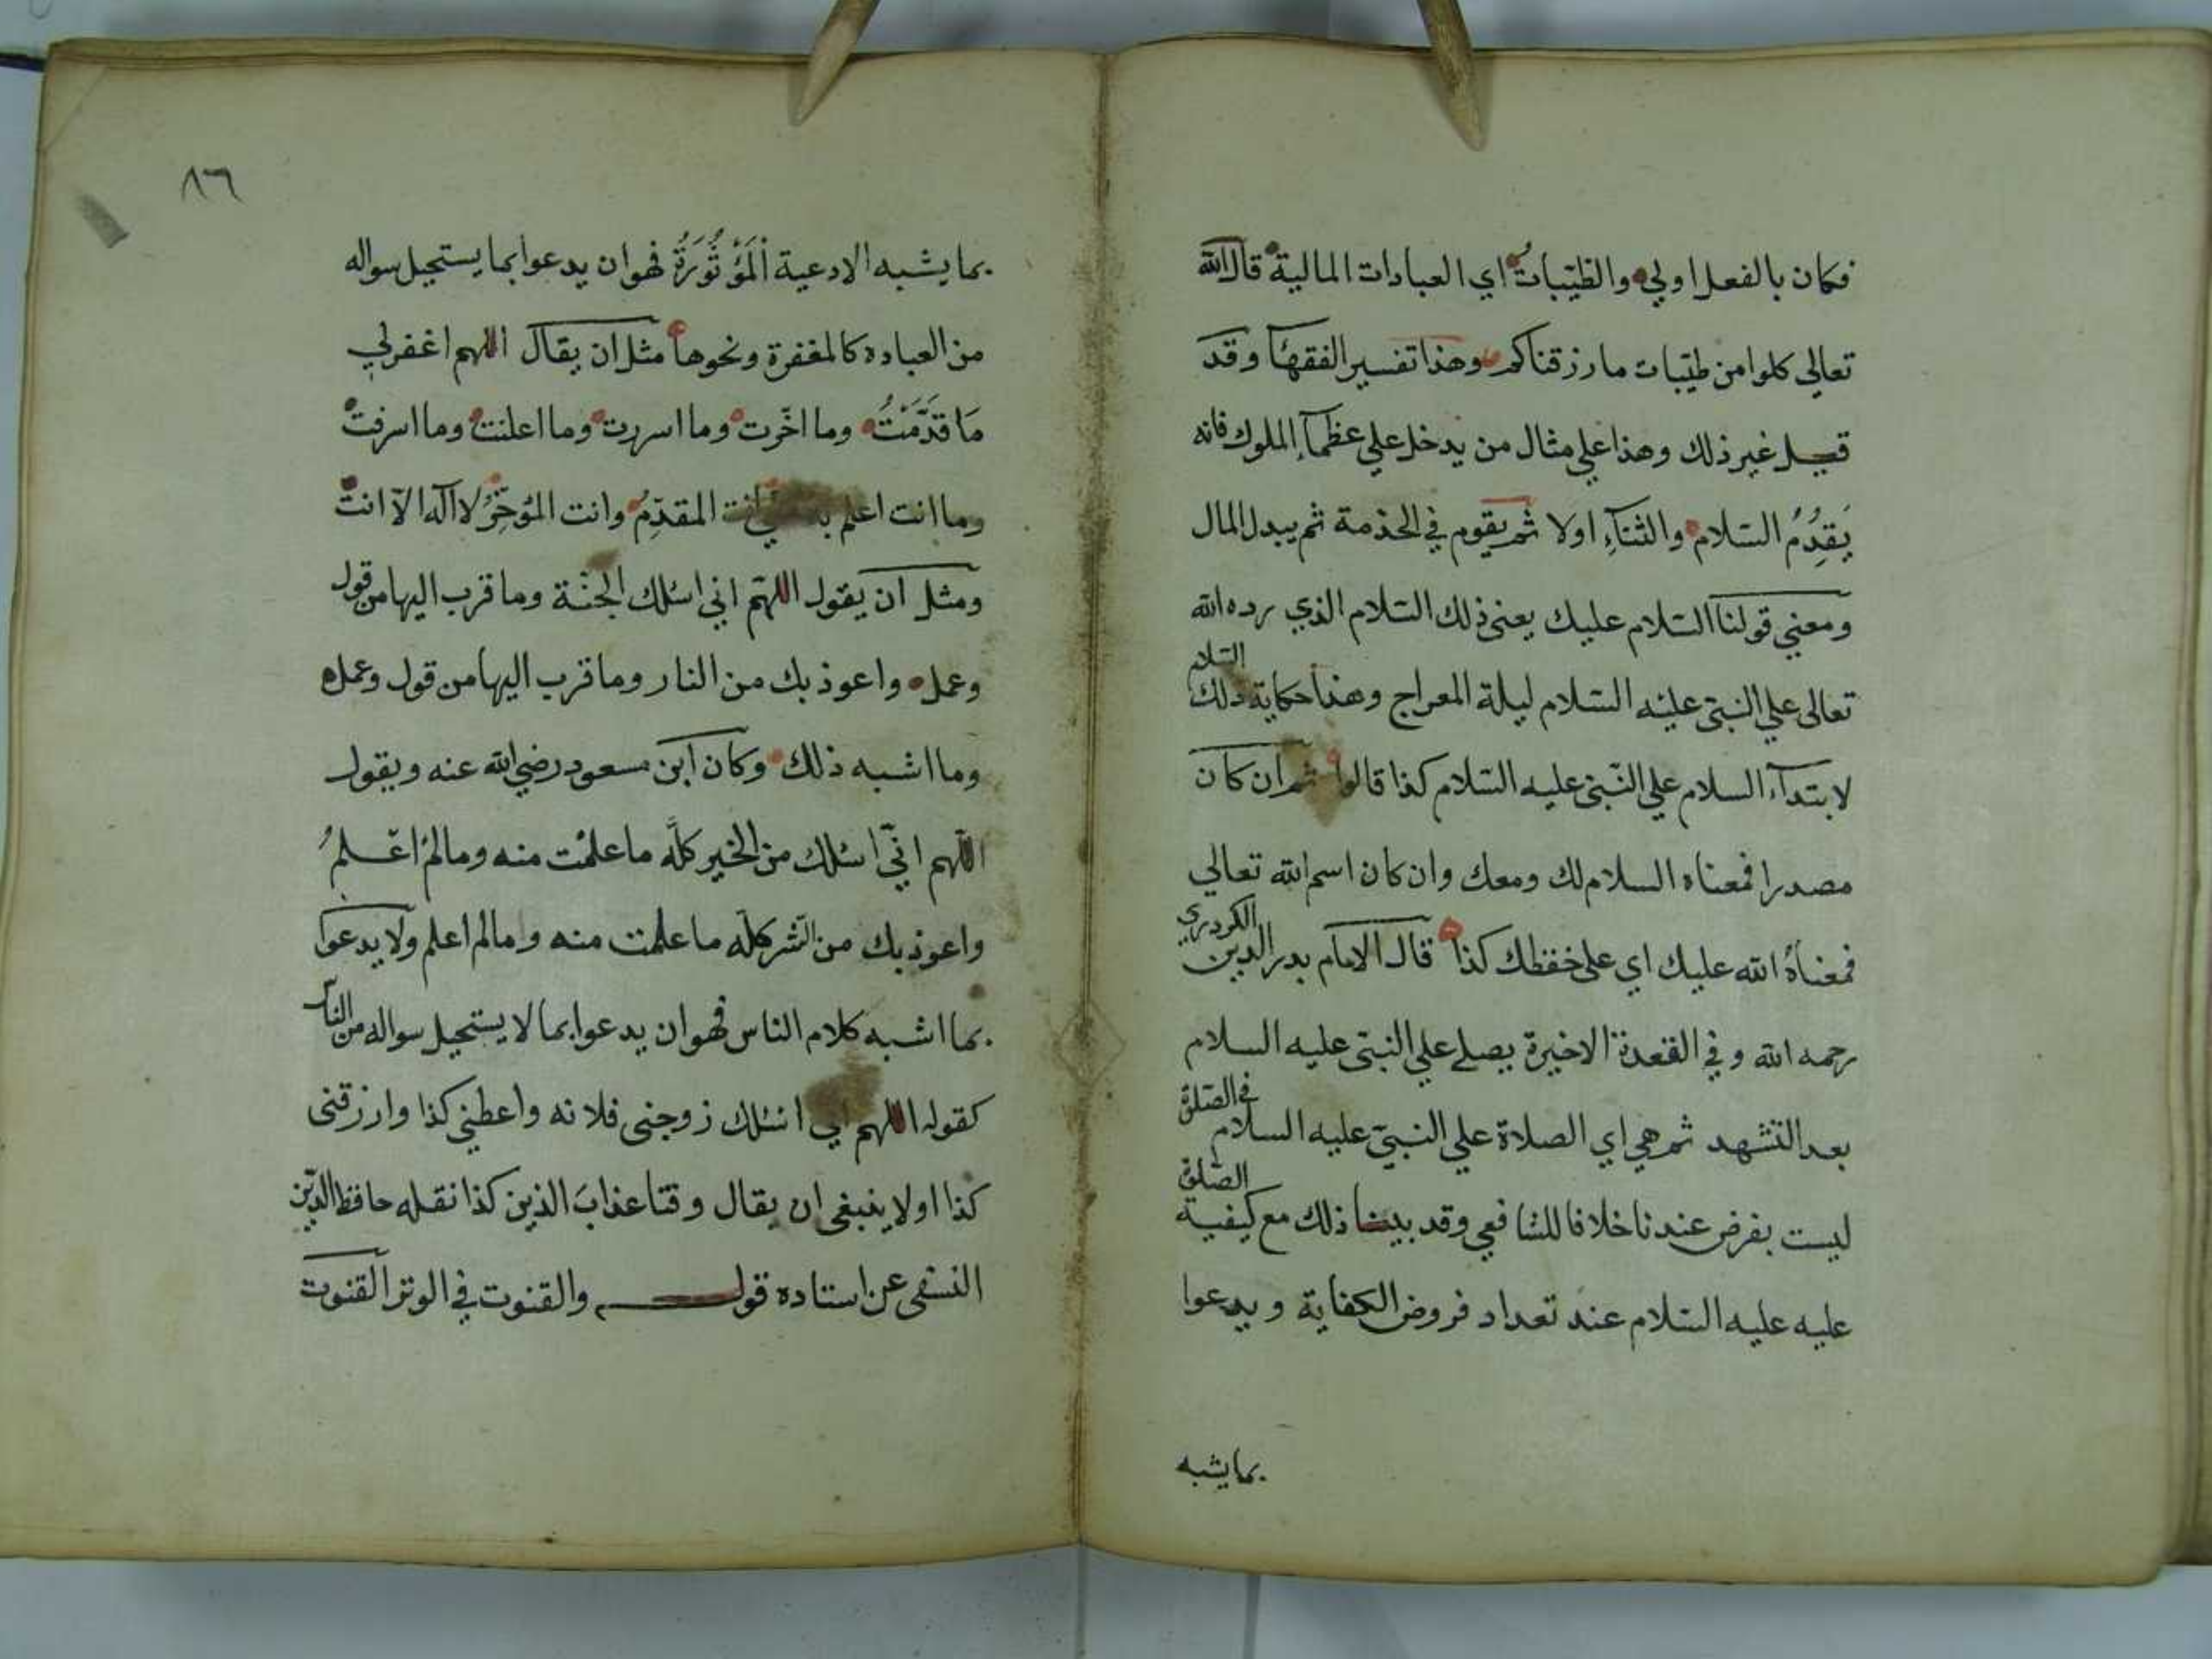 فكان بالفعل اولي والطيّباتُ اي العبادات المالية قال الله
تعالي كلوا من طيّبات ما رزقناكم وهذا تفسير الفقهآ وقد
قيل غير ذلك وهذا علي مثال من يدخل علي عظمآءِ الملوك فانه
يَقدِمُ السّلام والثنآءِ اولا ثم يقوم في الخذمة ثم يبدل المال
ومعني قولنا السّلام عليك يعني ذلك السّلام الذي رده الله
تعالى علي النبيّ عليه السّلام ليلة المعراج وهذا حكاية ذلك السّلام
لابتدآء السلام علي النّبيّ عليه السّلام كذا قالوا ثم ان كان
مصدرا فمعناه السلام لك ومعك وان كان اسم الله تعالي
فمعناهُ الله عليك اي على خفظك كذا قال الامام بدر الدين الكردري
رحمه الله وفي القعدة الاخيرة يصلے علي النبيّ عليه السلام
بعد التشهد ثم هي اي الصلاة علي النبيّ عليه السلام في الصّلوة
ليست بفرض عندنا خلافا للشافعي وقد بينا ذلك مع كيفية الصّلوة
عليه عليه السّلام عند تعداد فروض الكفاية ويدعوا
بما يشبه
٨٦
بما يشبه الادعية اْلمَؤْثُورَةُ فهو ان يدعوا بما يستحيل سواله
من العباده كالمغفرة ونحوها مثل ان يقال اللهم اغفرلي
مَا قدَّمْتُ وما اخّرت وما اسررت وما اعلنت وما اسرفت
وما انت اعلم انت المقدِّمُ وانت المؤخِّرُ لا آله الاّ انت
ومثل ان يقول اللهمّ اني اسئلك الجنّة وما قرب اليها من قول
وعمل واعوذ بك من النار وما قرب اليها من قول وعمل
وما اشبه ذلك وكان ابن مسعود رضي الله عنه ويقول
اللّهم انّي اسئلك من الخير كلّه ما علمْت منه وما لمْ اعلمُ
واعوذ بك من الشّر كلّه ما علمت منه وما لم اعلم ولا يدعوا
بما اشبه كلام الناس فهو ان يدعوا بما لا يستحيل سواله من النّاس
كقوله اللهم اني اسئلك زوجني فلانه واعطني كذا وارزقني
كذا اولا ينبغي ان يقال وقنا عذابَ الذين كذا نقله حافظ الدّين
النسفي عن استاده قولـــــــه والقنوت في الوتر القنوت